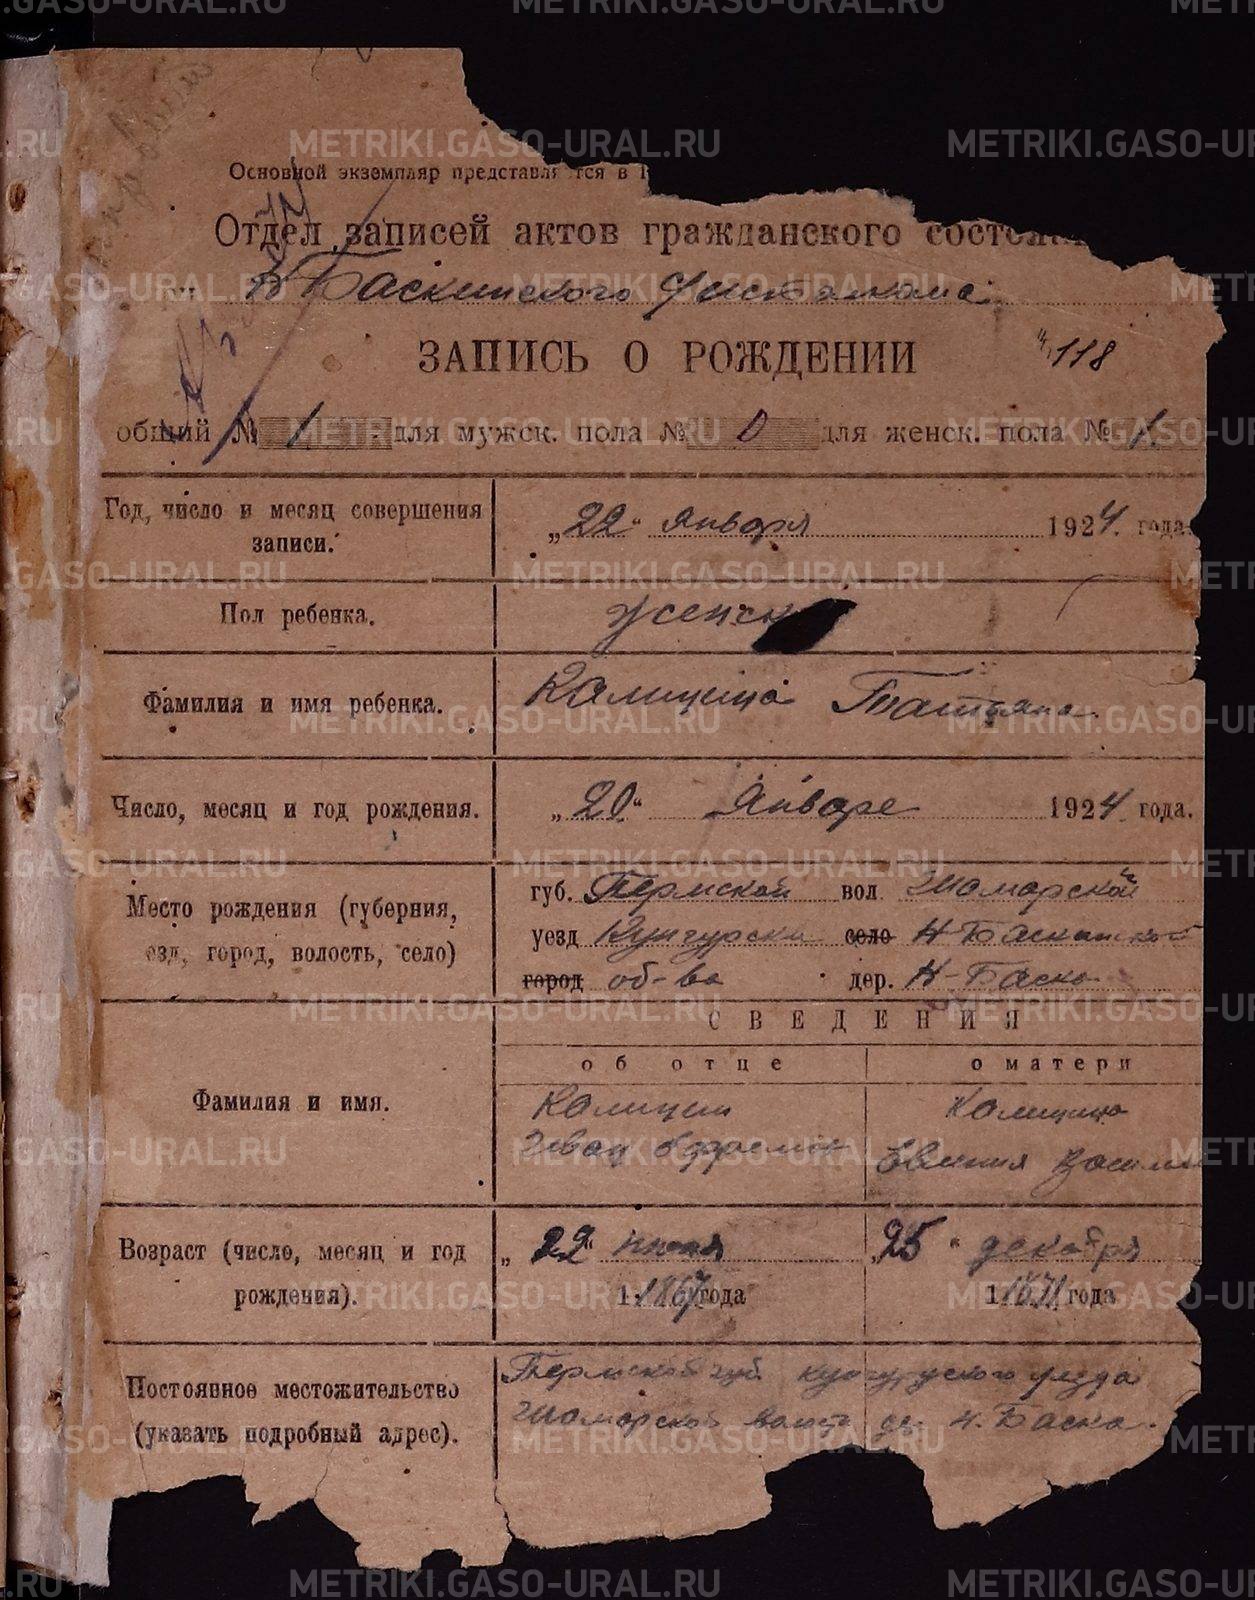 METRIKI.GASO-URAL.RU
Основной экземпляр представляется в
Отдел записей актов гражданского состоя
Н Баскинского
ЗАПИСЬ О РОЖДЕНИИ 118
общий № 1 для мужск. пола № 0 для женск. пола № 1
Год, число и месяц совершения записи. „22" января 1924 года.
Пол ребенка. женск
Фамилия и имя ребенка. Калицина Татьяна
Число, месяц и год рождения. „20" Январе 1924 года.
Место рождения (губерния, губ. Пермской вол Шамарской
езд, город, волость, село) уезд Кунгурски село Н Баскинской
город об-ва дер. Н-Баска
СВЕДЕНИЯ
об отце о матери
Фамилия и имя. Калицин Калицина
Иван Евгения
Возраст (число, месяц и год „22" июля „25" декабря
рождения). 1867 года 1871 года
Постоянное местожительство Пермской губ. Кунгурского уезда
(указать подробный адрес). Шамарской волости д. Н. Баска.